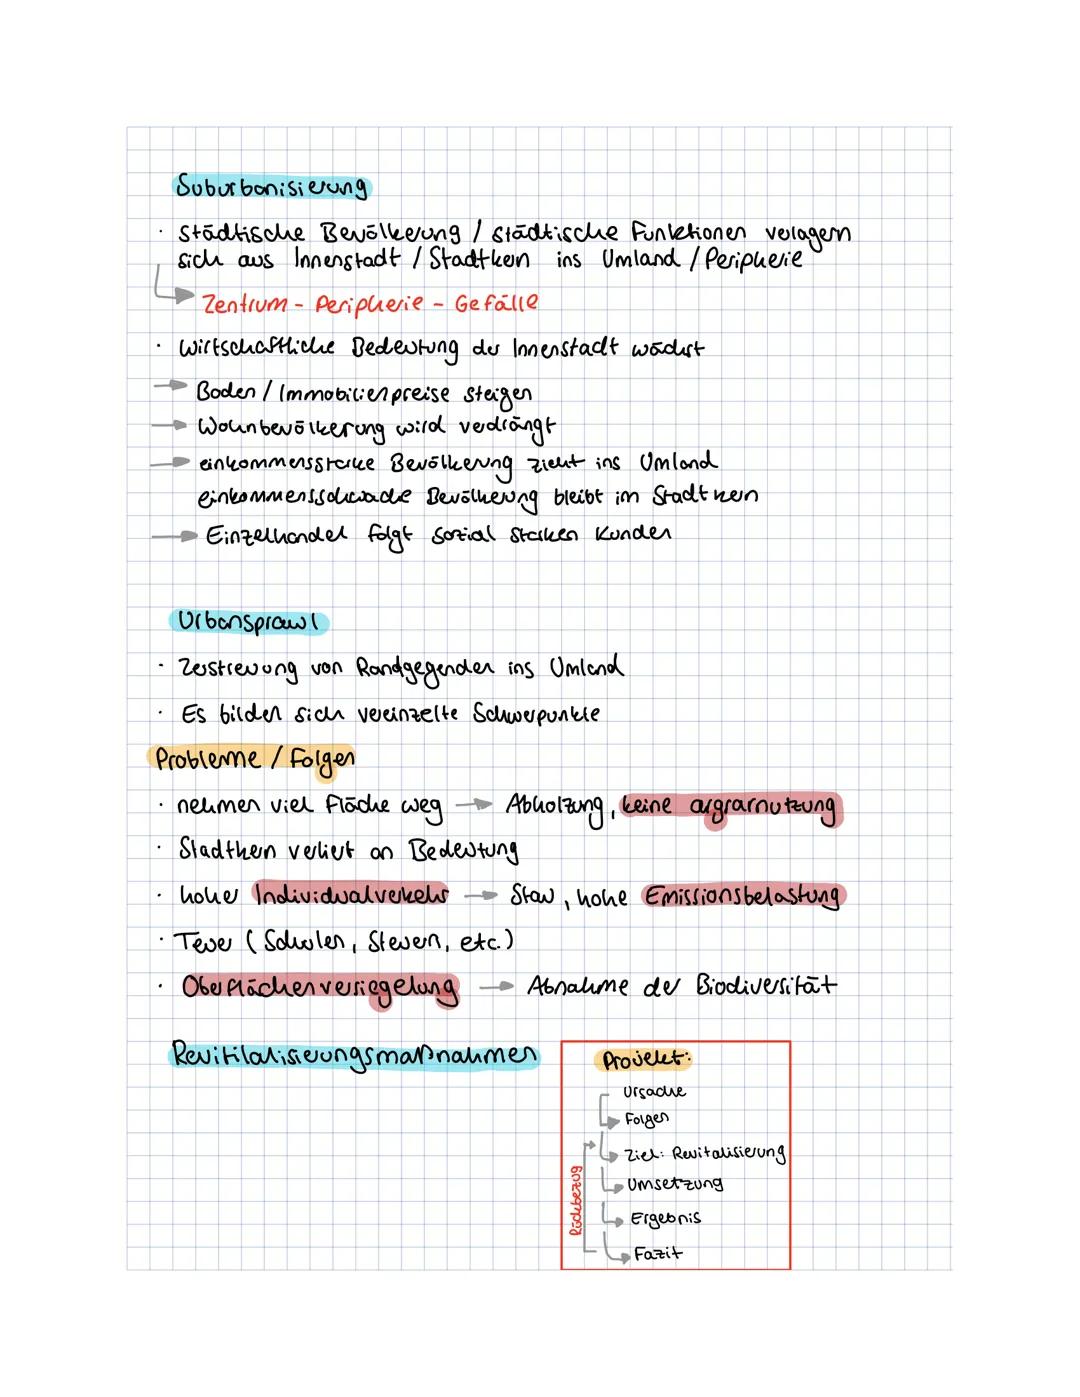 Suburbanisierung
· städtische Bevölkerung / städtische Funktionen verlagern
sich aus Innenstadt / Stadtkern ins Umland / Peripherie
Zentrum - Peripherie - Gefälle
· Wirtschaftliche Bedeutung der Innenstadt wächst
→ Boden / Immobilienpreise steigen
→ Wohnbevölkerung wird verdrängt
→ einkommensstarke Bevölkerung zieht ins Umland
einkommensschwache Bevölkerung bleibt im Stadtkern
→ Einzelhandel folgt sozial starken Kunden
Urbansprawl
· Zerstreuung von Randgegenden ins Umland
· Es bilden sich vereinzelte Schwerpunkte
Probleme / Folgen
· nehmen viel Fläche weg → Abholzung, keine argrarnutzung
· Stadtkern verliert an Bedeutung
· hoher Individualverkehr → Stau, hohe Emissionsbelastung
· Teuer (Schulen, Steuern, etc.)
· Oberflächenversiegelung → Abnahme der Biodiversität
Revitilalisierungsmaßnahmen
Projekt:
Ursache
Folgen
Ziel: Revitalisierung
Umsetzung
Ergebnis
Fazit
Rückbezug